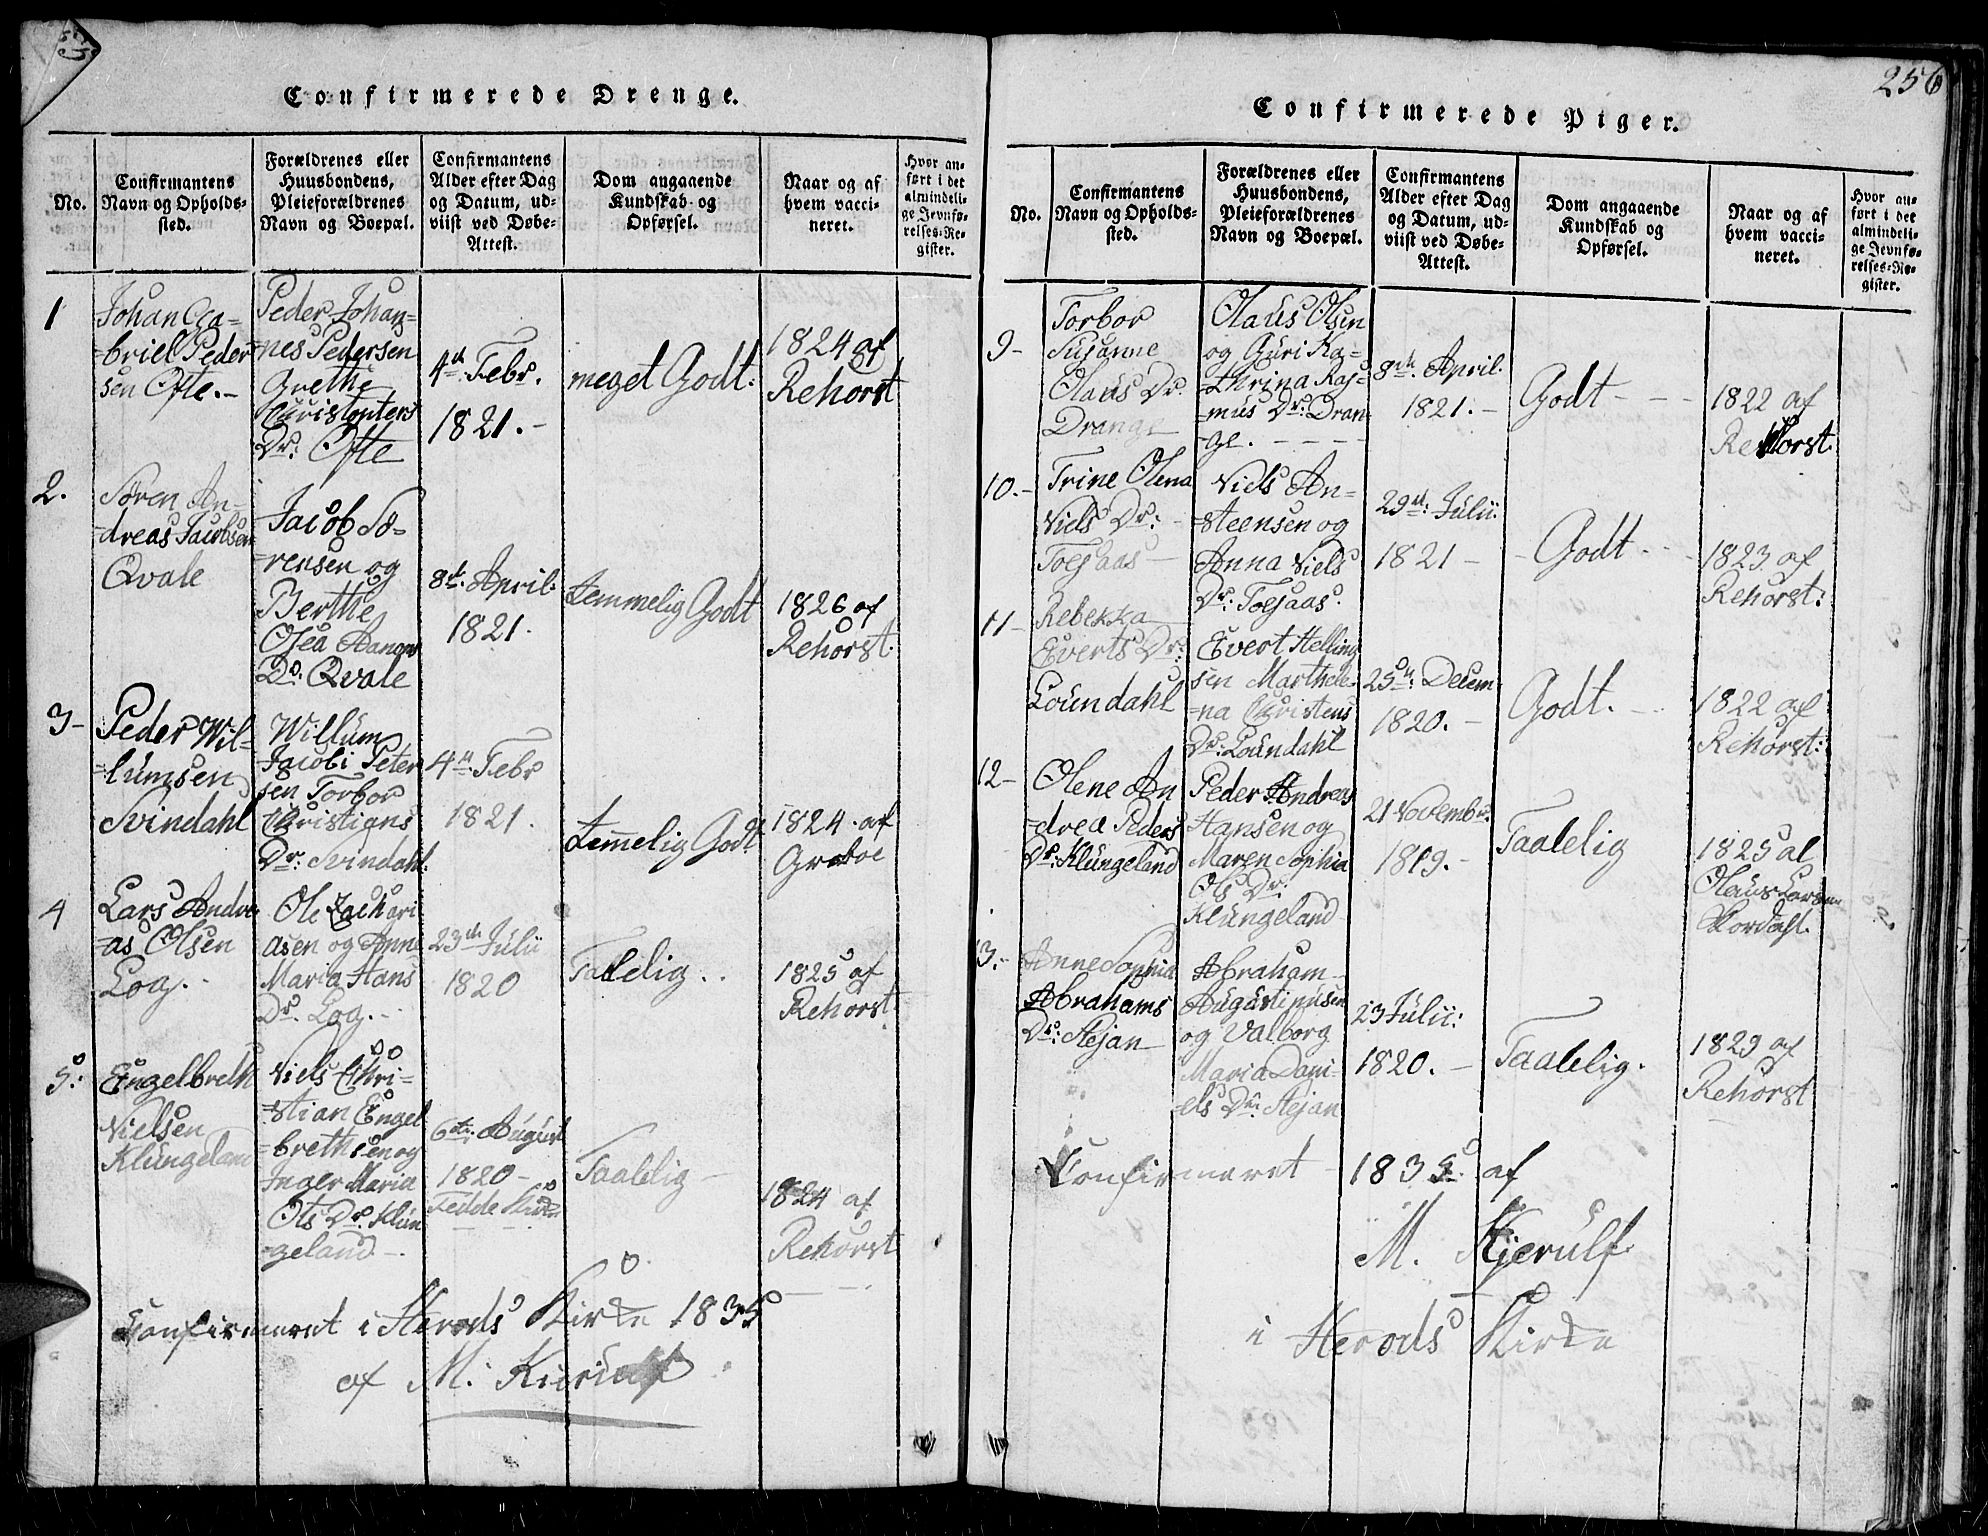 Confirmerede Drenge.
No.
Confirmantens
Navn og Opholds-
sted.
Forældrenes eller
Huusbondens,
Pleieforældrenes
Navn og Boepæl.
Confirmantens
Alder efter Dag
og Datum, ud-
viist ved Døbe-
Attest.
Dom angaaende
Kundskab og
Opførsel.
Naar og af
hvem vacci-
neret.
Hvor an-
ført i det
almindeli-
ge Jevnfø-
relses-Re-
gister.
1
Johan Ga-
=briel Peder
sen Ofte.-
Peder Johan-
=nes Pedersen
Grethe
Christophers
Dr: Ofte
4d Febr.
1821.-
meget Godt.
1824 af
Rehorst
2.
Søren An-
=dreas Jacobsen
Qvale
Jacob Sø-
=rensen og
Berthe
Osea Aanons
Dr. Qvale
8d. April.
1821.
temmelig Godt
1826 af
Rehorst.
3-
Peder Wil-
=lumsen
Svindahl
Willum
Jacobi Peter
sen Torbor
Christians
Dr: Svindahl.
4d Febr
1821.
temmelig Godt
1824. af
Greboe
4
Lars Andre
=as Olsen
Log.-
Ole Zachari
asen og Anne
Maria Hans
Dr. Log.-
23de Julii
1820
Taalelig..
1825 af
Rehorst
5.
Engelbreth
Nielsen
Klungeland
Niels Chri-
=stian Engel
=brethsen og
Inger Maria
Ols Dr. Klun
=geland-.
6te. August
1820-
Taalelig-
1824 af
Rehorst
Confirmeret i Herods Kirke 1835
af M. Kierulf
256
Confirmerede Piger.
No.
Confirmantens
Navn og Opholds-
sted.
Forældrenes eller
Huusbondens,
Pleieforældrenes
Navn og Boepæl.
Confirmantens
Alder efter Dag
og Datum, ud-
viist ved Døbe-
Attest.
Dom angaaende
Kundskab og
Opførsel.
Naar og af
hvem vacci-
neret.
Hvor an-
ført i det
almindeli-
ge Jevnfø-
relses-Re-
gister.
9-
Torbor
Susanne
Olaus Dr.
Drange
Olaus Olsen
og Guri Ka-
=thrina Ras-
=mus Dr: Dran-
=ge.
8de. April.
1821.-
Godt--
1822 af
Rehorst.
10.-
Trine Olena
Niels Dr:
Toesaas
Niels An-
=steensen og
Anna Niels
Dr: Toesaas.
29d: Julii.
1821-
Godt.-
1823. af
Rehorst:
11-
Rebekka
Everts Dr:
Loundahl
Evert Helling
sen Marthele-
=na Christens
Dr: Loundahl
25d: Decem-
1820.-
Godt.-
1822 af
Rehorst:
12-
Olene An
=drea Peders
Dr: Klungeland
Peder Andreas
Hansen og
Maren Sophia
Ols Dr:
Klungeland
21 Novembr.
1819.-
Taalelig
1825 al
Olaus Larsen
Nordahl.
13.-
Anne Sophia
Abrahams
Dr: Stejan
Abraham
Augustinusen
og Valborg
Maria Dani-
=els Dr: Stejan
23 Julii:
1820.-
Taalelig.
1823 af
Rehorst
Confirmeret 1835. af
M. Kjerulf
i Herods Kirke